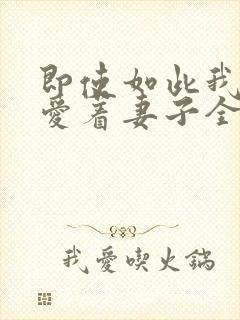 即使如此我
愛着妻子全
我愛喫火鍋